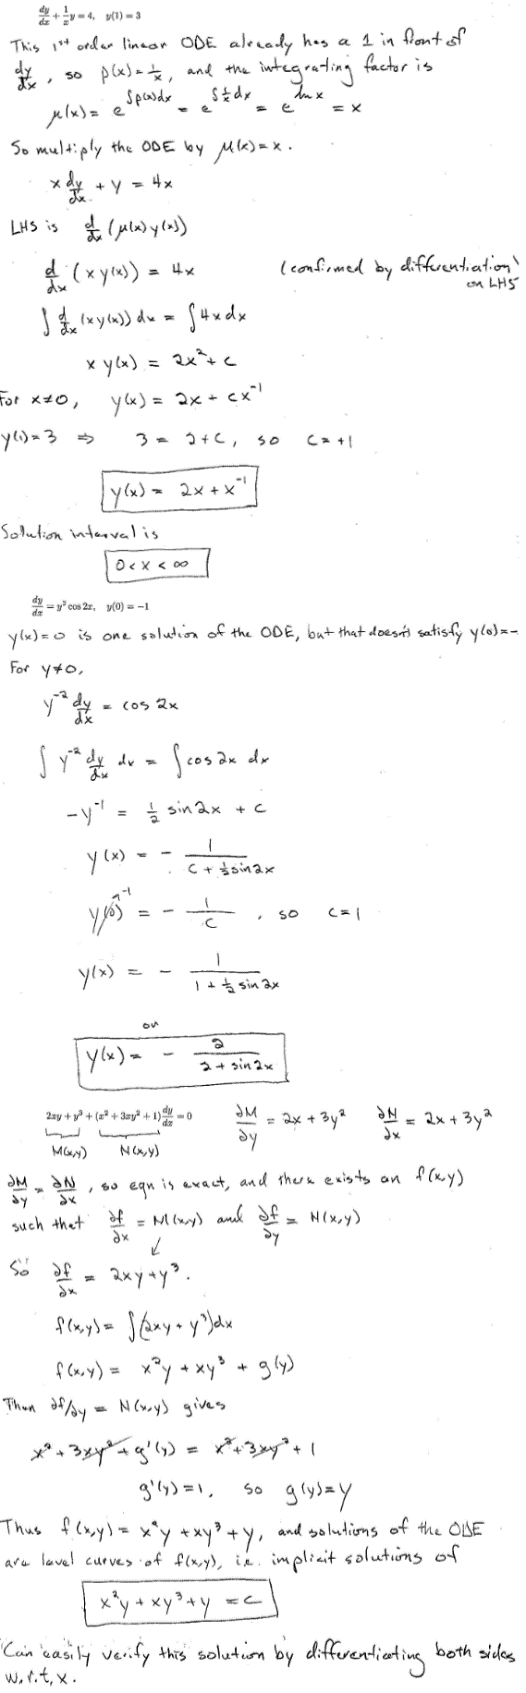 dy/dx + 1/x y = 4, y(1) = 3
This 1st order linear ODE already has a 1 in front of
dy/dx, so p(x) = 1/x, and the integrating factor is
μ(x) = e^∫p(x)dx = e^∫1/x dx = e^ln x = x
So multiply the ODE by μ(x) = x.
x dy/dx + y = 4x
LHS is d/dx (μ(x) y(x))
d/dx (x y(x)) = 4x (confirmed by differentiation on LHS
∫ d/dx (x y(x)) dx = ∫ 4x dx
x y(x) = 2x² + c
For x≠0, y(x) = 2x + cx⁻¹
y(1) = 3 ⇒ 3 = 2 + C, so C = +1
y(x) = 2x + x⁻¹
Solution interval is
0 < x < ∞
dy/dx = y² cos 2x, y(0) = −1
y(x) = 0 is one solution of the ODE, but that doesn't satisfy y(0) = −
For y≠0,
y⁻² dy/dx = cos 2x
∫ y⁻² dy/dx dx = ∫ cos 2x dx
−y⁻¹ = ½ sin 2x + C
y(x) = − 1/(C + ½ sin 2x)
y(0) −1 = − 1/C, so C = 1
y(x) = − 1/(1 + ½ sin 2x)
or
y(x) = − 2/(2 + sin 2x)
2xy + y³ + (x² + 3xy² + 1) dy/dx = 0 ∂M/∂y = 2x + 3y² ∂N/∂x = 2x + 3y²
M(x,y) N(x,y)
∂M/∂y = ∂N/∂x, so eqn is exact, and there exists an f(x,y)
such that ∂f/∂x = M(x,y) and ∂f/∂y = N(x,y)
So ∂f/∂x = 2xy + y³.
f(x,y) = ∫(2xy + y³)dx
f(x,y) = x²y + xy³ + g(y)
Then ∂f/∂y = N(x,y) gives
x² + 3xy² + g'(y) = x² + 3xy² + 1
g'(y) = 1, so g(y) = y
Thus f(x,y) = x²y + xy³ + y, and solutions of the ODE
are level curves of f(x,y), i.e. implicit solutions of
x²y + xy³ + y = C
Can easily verify this solution by differentiating both sides
w.r.t. x.